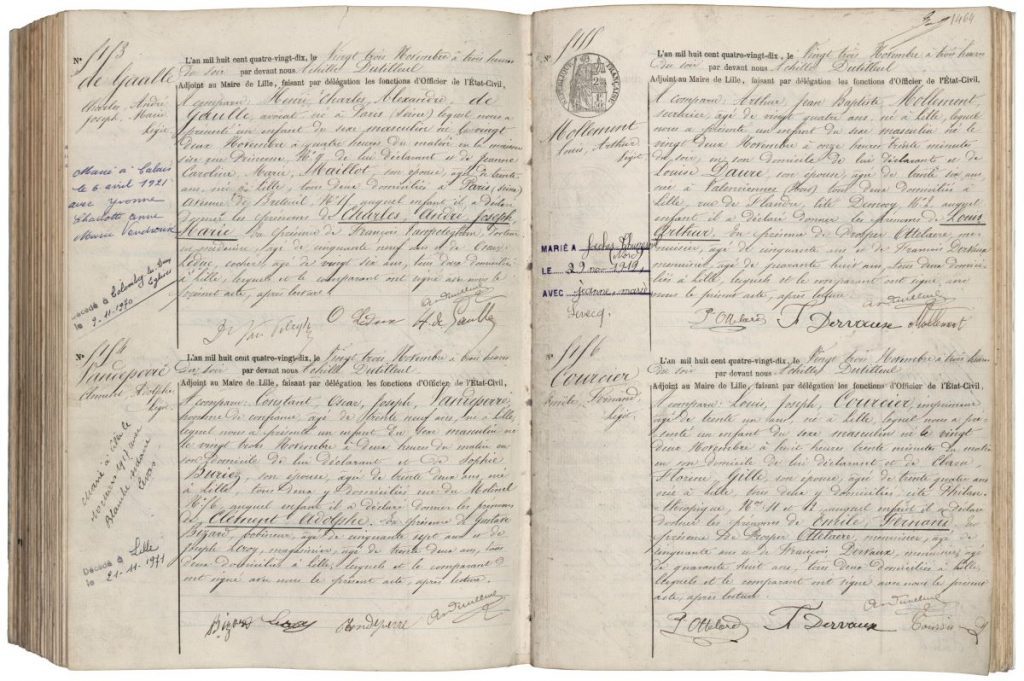 N° 5153
de Gaulle
Charles, André
Joseph, Marie
Légit
Marié à Calais
le 6 avril 1921
avec Yvonne
Charlotte Anne
Marie Vendroux
Décédé à Colombey les Deux
Eglises
le 9-11-1970
L'an mil huit cent quatre-vingt-dix, le Vingt trois Novembre à trois heures
du soir par devant nous Achille Dutilleul
Adjoint au Maire de Lille, faisant par délégation les fonctions d'Officier de l'État-Civil,
A comparu Henri, Charles, Alexandre, de
Gaulle, avocat né à Paris (Seine) lequel nous a
présenté un enfant du sexe masculin né le vingt
deux Novembre à quatre heures du matin en la maison
sise rue Princesse, N° 9 de lui déclarant et de Jeanne
Caroline, Marie, Maillot, son épouse, âgée de trente
ans, née à Lille, tous deux domiciliés à Paris (Seine)
avenue de Breteuil, N° auquel enfant il a déclaré
donner les prénoms de Charles, André, Joseph,
Marie. En présence de François docteur
en médecine, âgé de cinquante neuf ans et de
Ledoux, cocher, âgé de vingt six ans, tous deux domiciliés
à Lille, lesquels et le comparant ont signé avec nous le
présent acte, après lecture.
O Ledoux H. de Gaulle
N° 5154
Vandepevre
Clément Adolphe
Légit
Marié à Lille le
1919 avec
Blanche
Décédé à Lille
le 21-11-1971
L'an mil huit cent quatre-vingt-dix, le Vingt trois Novembre à trois heures
du soir par devant nous Achille Dutilleul
Adjoint au Maire de Lille, faisant par délégation les fonctions d'Officier de l'État-Civil,
A comparu Constant, Oscar, Joseph, Vandepevre,
homme de confiance, âgé de trente neuf ans, né à Lille
lequel nous a présenté un enfant du sexe masculin né
le vingt trois Novembre à deux heures du matin en
son domicile de lui déclarant et de Sophie
son épouse, âgée de trente deux ans, née
à Lille, tous deux y domiciliés rue du Molinel
N° 76 auquel enfant il a déclaré donner les prénoms
de Clément Adolphe. En présence de Gustave
Bizard, âgé de cinquante sept ans et de
Joseph Leroy, magasinier, âgé de trente deux ans, tous
deux domiciliés à Lille, lesquels et le comparant
ont signé avec nous le présent acte, après lecture.
Bizard Leroy Vandepevre
1464
5155
RÉPUBLIQUE FRANÇAISE
Mollemont
Louis, Arthur
Légit
MARIÉ A
(Nord)
LE 29 nov. 1919
AVEC Jeanne, Marie
Levecq
L'an mil huit cent quatre-vingt-dix, le Vingt trois Novembre à trois heures
du soir par devant nous Achille Dutilleul
Adjoint au Maire de Lille, faisant par délégation les fonctions d'Officier de l'État-Civil,
A comparu Arthur, Jean Baptiste, Mollemont,
serrurier, âgé de vingt quatre ans, né à Lille, lequel
nous a présenté un enfant du sexe masculin né le
vingt deux Novembre à onze heures trente minutes
du soir, en son domicile de lui déclarant et de
Louise Davre, son épouse, âgée de trente six ans,
née à Valenciennes (Nord) tous deux domiciliés à
Lille, rue de Flandre, cité N° 2 auquel
enfant il a déclaré donner les prénoms de Louis
Arthur. En présence de Prosper Ottelard,
menuisier, âgé de cinquante ans et de François Dervaux
menuisier, âgé de quarante huit ans, tous deux domiciliés
à Lille, lesquels et le comparant ont signé avec
nous le présent acte, après lecture.
P Ottelard F Dervaux Mollemont
N° 5156
Courcier
Emile, Fernand
Légit
L'an mil huit cent quatre-vingt-dix, le Vingt trois Novembre à trois heures
du soir par devant nous Achille Dutilleul
Adjoint au Maire de Lille, faisant par délégation les fonctions d'Officier de l'État-Civil,
A comparu Louis, Joseph, Courcier, imprimeur
âgé de trente un ans, né à Lille, lequel nous a pré-
senté un enfant du sexe masculin né le vingt
deux Novembre à huit heures trente minutes du matin
en son domicile de lui déclarant et de Clara
Florine Gille, son épouse, âgée de trente quatre ans
née à Lille, tous deux y domiciliés cité Philan-
thropique, N° 11 et 12 auquel enfant il a déclaré
donner les prénoms de Emile Fernand. En
présence de Prosper Ottelard, menuisier, âgé de
cinquante ans et de François Dervaux, menuisier, âgé
de quarante huit ans, tous deux domiciliés à Lille,
lesquels et le comparant ont signé avec nous le présent
acte, après lecture.
P Ottelard F Dervaux Courcier